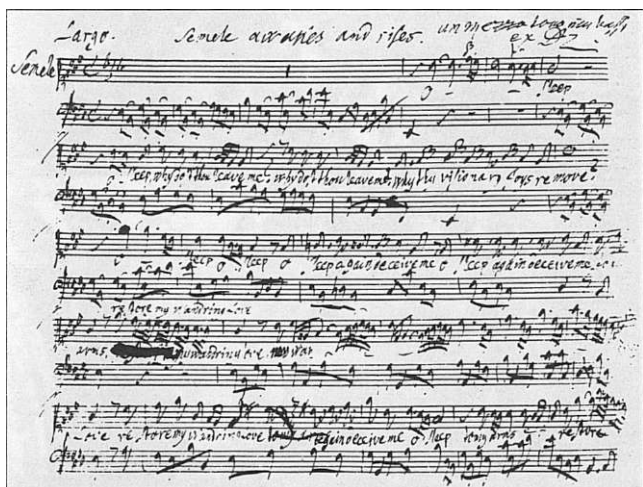 Largo. Semele awakes and rises. un mezzo tono più basso
ex D
Semele
O sleep
sleep why dost thou leave me, why dost thou leave me, why thy visionary Joys remove?
O sleep o sleep o sleep again deceive me o sleep again deceive me to my
restore my wandring Love
arms, my wandring Love my wan
Love restore my wandring Love again deceive me o sleep to my arms restore